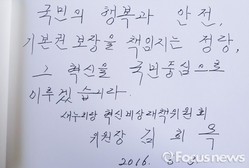 국민의 행복과 안전,
기본권 보장을 책임지는 정당,
그 혁신을 국민중심으로
이루겠습니다.
새누리당 혁신비상대책위원회
위원장 김희옥
2016.
포커스뉴스